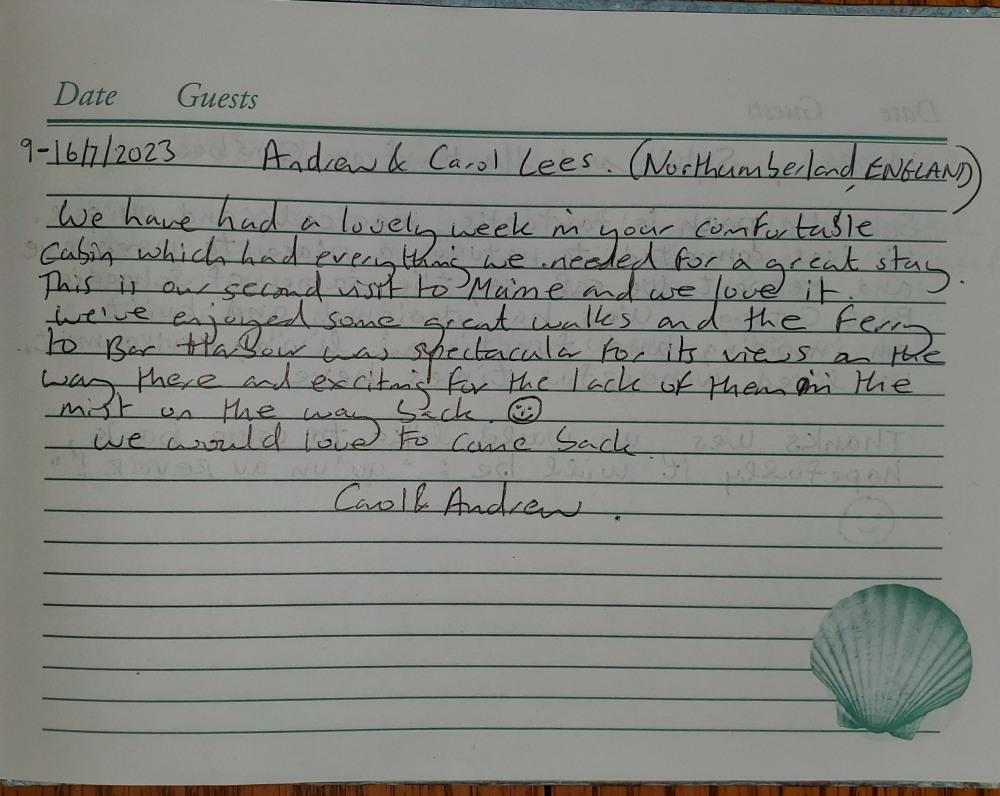 Date Guests
9-16/7/2023 Andrew & Carol Lees. (Northumberland, ENGLAND)
We have had a lovely week in your comfortable
Cabin which had everything we needed for a great stay.
This is our second visit to Maine and we love it.
We've enjoyed some great walks and the Ferry
to Bar Harbour was spectacular for its views on the
way there and exciting for the lack of them in the
mist on the way back. ☺
We would love to come back.
Carol & Andrew.